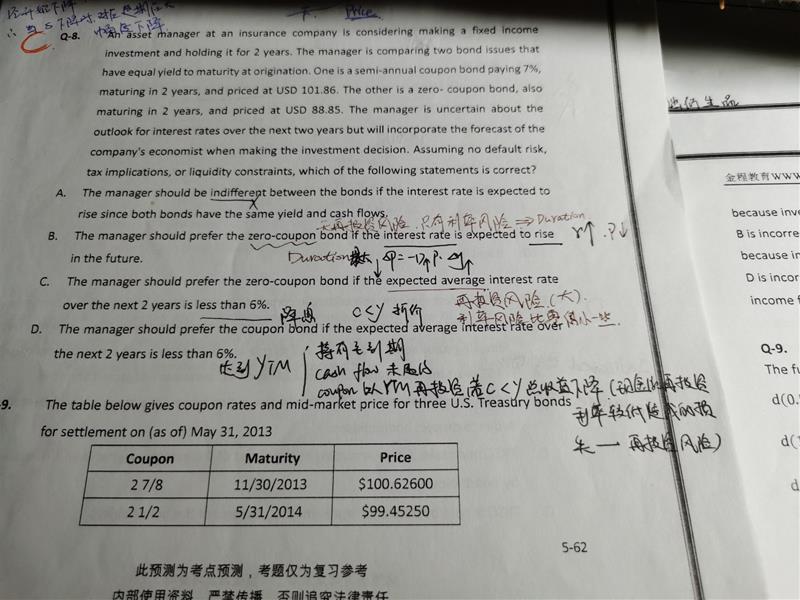 Price
Q-8. An asset manager at an insurance company is considering making a fixed income
investment and holding it for 2 years. The manager is comparing two bond issues that
have equal yield to maturity at origination. One is a semi-annual coupon bond paying 7%,
maturing in 2 years, and priced at USD 101.86. The other is a zero- coupon bond, also
maturing in 2 years, and priced at USD 88.85. The manager is uncertain about the
outlook for interest rates over the next two years but will incorporate the forecast of the
company's economist when making the investment decision. Assuming no default risk,
tax implications, or liquidity constraints, which of the following statements is correct?
A. The manager should be indifferent between the bonds if the interest rate is expected to
rise since both bonds have the same yield and cash flows.
无再投资风险,只有利率风险 ⇒ Duration
B. The manager should prefer the zero-coupon bond if the interest rate is expected to rise
r↑ P↓
in the future.
Duration
C. The manager should prefer the zero-coupon bond if the expected average interest rate
over the next 2 years is less than 6%.
降息
C<Y 折价
再投资风险(大).
利率风险比零息小一些.
D. The manager should prefer the coupon bond if the expected average interest rate over
the next 2 years is less than 6%.
达到 YTM
持有至到期
cash flow
coupon 以 YTM 再投资 若 C<Y 总收益下降 (现金的再投资
利率较低
失 — 再投资风险)
-9. The table below gives coupon rates and mid-market price for three U.S. Treasury bonds
for settlement on (as of) May 31, 2013
Coupon Maturity Price
2 7/8 11/30/2013 $100.62600
2 1/2 5/31/2014 $99.45250
5-62
此预测为考点预测，考题仅为复习参考
内部使用资料，严禁传播，否则追究法律责任
金程教育WWW
because inve
B is incorre
because in
D is incor
income f
Q-9.
The fu
d(0.
d(1
d